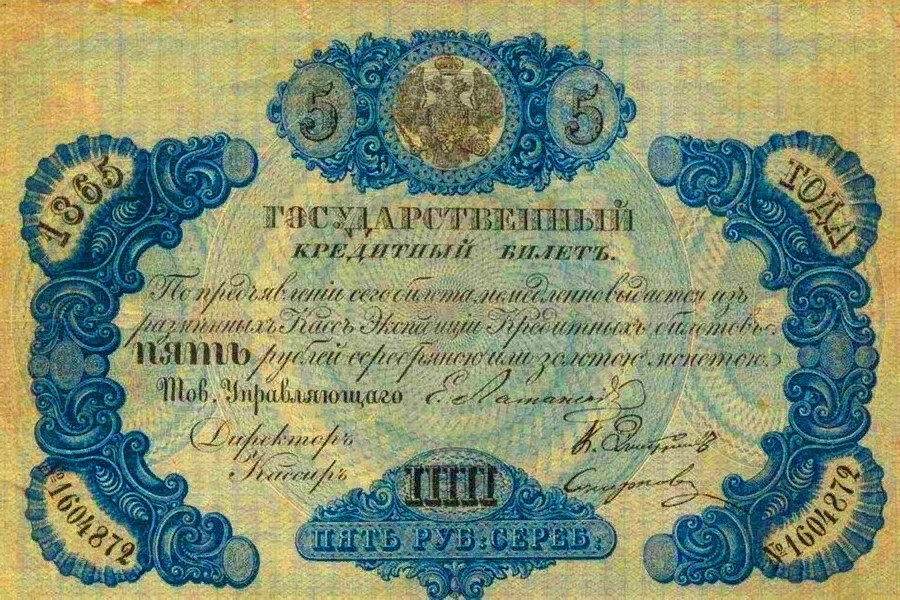 5 5
1865 ГОДА
ГОСУДАРСТВЕННЫЙ
КРЕДИТНЫЙ БИЛЕТЪ.
По предъявленіи сего билета, немедленно выдается изъ
размѣнныхъ Кассъ Экспедиціи Кредитныхъ билетовъ
ПЯТЬ рублей серебряною или золотою монетою.
Тов. Управляющаго
Директоръ
Кассиръ
№1604872 №1604872
ПЯТЬ РУБ: СЕРЕБ: